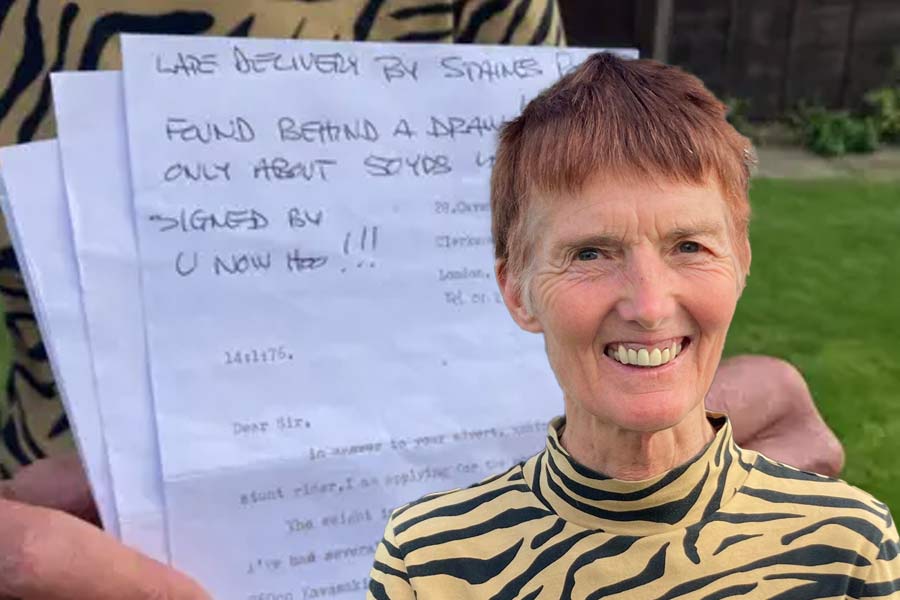 LATE DELIVERY BY STAINES P
FOUND BEHIND A DRAW
ONLY ABOUT 50YDS
SIGNED BY
U NOW HOO !!!
London,
14:1:76.
Dear Sir,
in answer to your advert,
stunt rider,I am applying for the
The weight
i've had several
Kawasaki